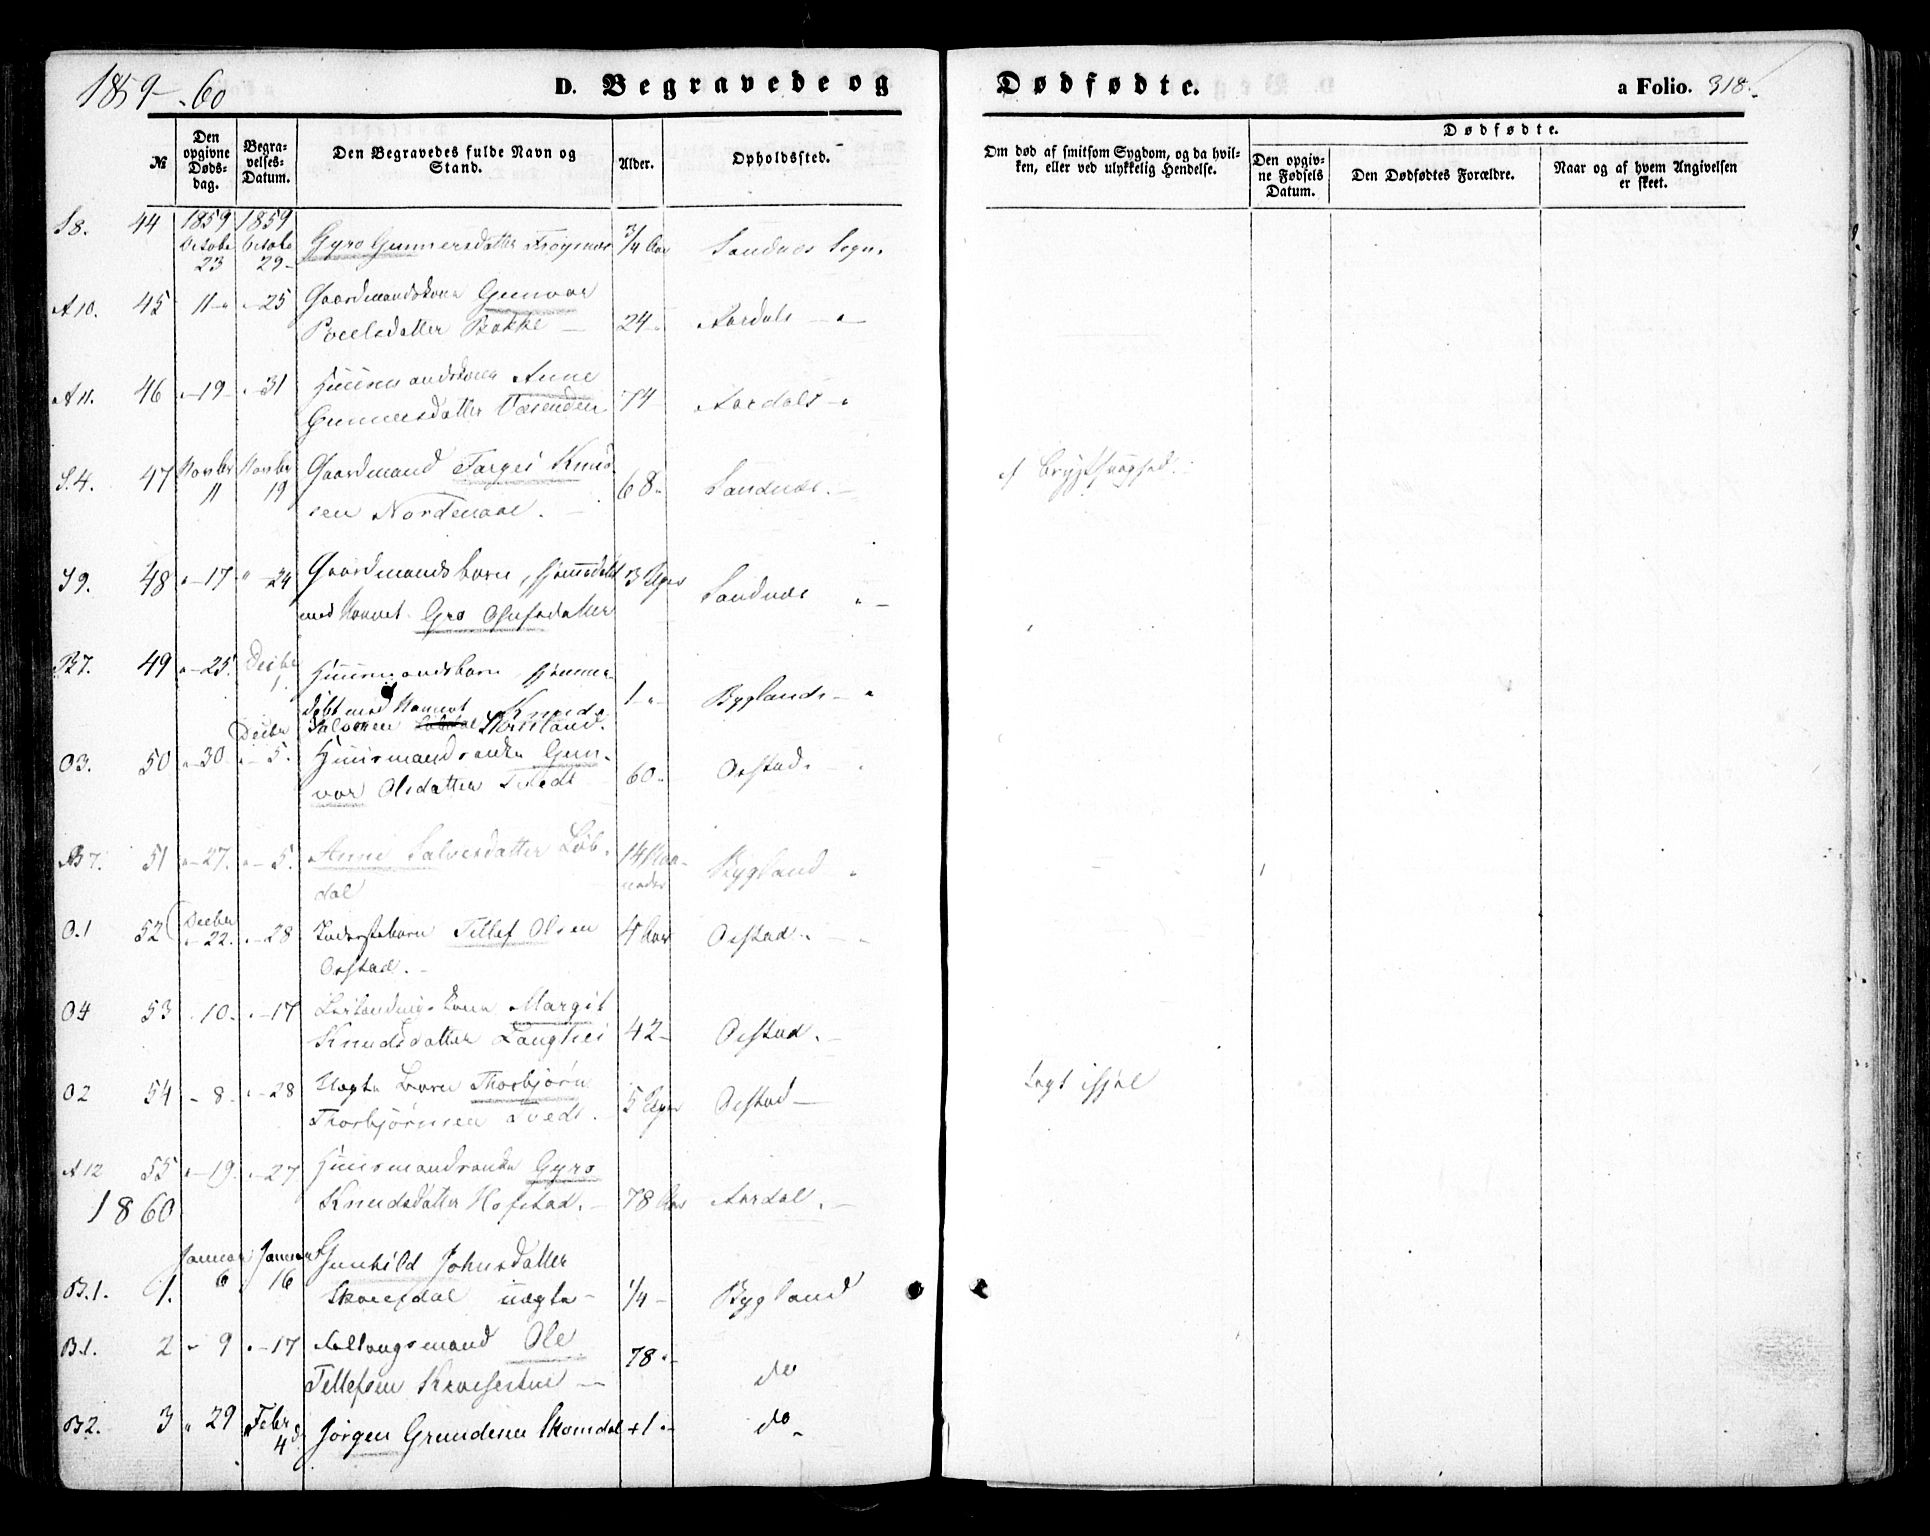 1859-60
D. Begravede og Dødfødte.
a Folio. 318.
№
Den opgivne Dødsdag.
Begravelses-Datum.
Den Begravedes fulde Navn og Stand.
Alder.
Opholdssted.
Om død af smitsom Sygdom, og da hvilken, eller ved ulykkelig Hendelse.
Dødfødte.
Den opgivne Fødsels Datum.
Den Dødfødtes Forældre.
Naar og af hvem Angivelsen er skeet.
S8. 44 1859 Octobr 23 1859 Octobr 29- Gyro Gunnersdatter Frøysnes 3/4 Aar Sandnes Sogn.
A10. 45 11-" "-25 Gaardmandskone Gunvor
Poulsdatter Bakke - 24-. Aardals -"-
A11. 46 "-19- "-31 Huusmandskone Anne
Gunnersdatter 74 Aardals-"
S.4. 47 Novbr 11 Novbr 19 Gaardmand Targei Knud-
sen Nordenaae. - 68" Sandnæs. - af Brystsvaghed.
S9. 48 "-17 "-24 Gaardmandsbarn, hjemmedøbt 3 Uger
med Navnet Gro Olufsdatter Sandnæs "-
B7. 49 "-25. Decbr 1. Huusmandsbarn hjemme-
døbt med Navnet Knud 1-"- Byglands-"
Salvesen
O3. 50 "-30 Decbr "-5. Huusmandsenke Gun-
vor Olsdatter Tvedt 60" Ostad. - "
B7. 51 "-27. "-5. Anne Salvesdatter Løb-
dal 14 Maaneder Bygland-"
O.1 52 Decbr "-22. "-28 Inderstebarn Tellef Olsen
Ostad. - 4 Aar Ostad. - "
O4 53 "10- "-17 kone Margit
Knudsdatter Langhei 42- Ostad. -
O2 54 "-8- "-28 Uægte Barn Thorbjørn
Thorbjørnsen Tvedt. - 5 Uger Ostad - Lagt ihjel
A12 55 "-19. "-27 Huusmandsenke Gyro
Knudsdatter Hofstad. - 78 Aar Aardal. -
1860
B.1. 1. Januar 6 Januar 16 Gunhild Johnsdatter
uægte - 1/4- Bygland
B.1. 2 " 9 "-17 Ole
Tellefsen - 78"- do
B2. 3 " 29 Febr 4de Jørgen Gundersen Skomdal +1"- do -